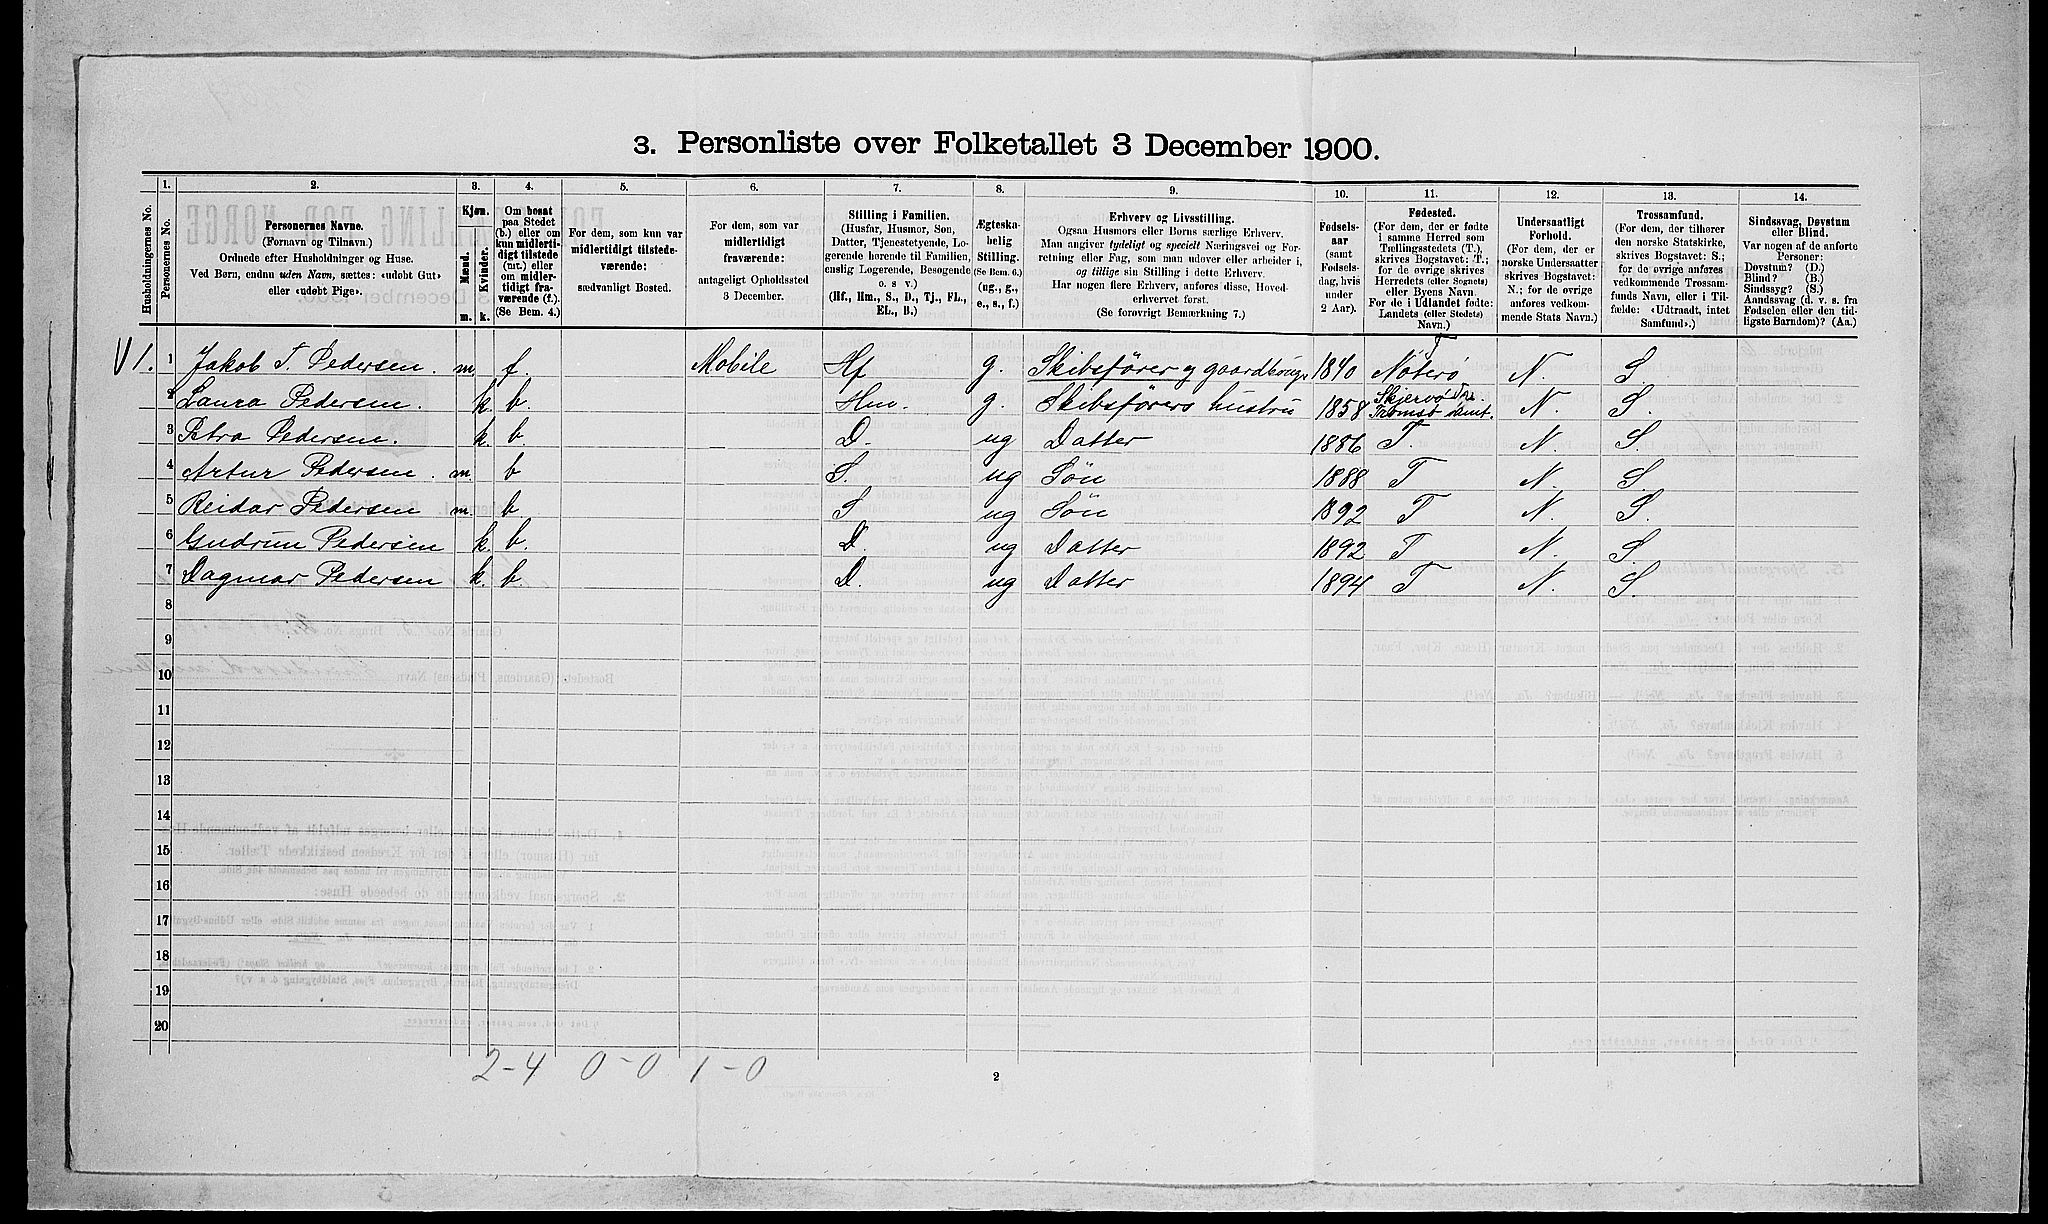 3. Personliste over Folketallet 3 December 1900.
1. 2. 3. 4. 5. 6. 7. 8. 9. 10. 11. 12. 13. 14.
Husholdningernes No.
Personernes No.
Personernes Navne.
(Fornavn og Tilnavn.)
Ordnede efter Husholdninger og Huse.
Ved Børn, endnu uden Navn, sættes: «udøbt Gut»
eller «udøbt Pige».
Kjøn.
Mænd.
Kvinder.
m. k.
Om bosat
paa Stedet
(b.) eller om
kun midlerti-
digt tilstede
(mt.) eller
om midler-
tidigt fra-
værende (f.)
(Se Bem. 4.)
For dem, som kun var
midlertidigt tilstede-
værende:
sædvanligt Bosted.
For dem, som var
midlertidigt
fraværende:
antageligt Opholdssted
3 December.
Stilling i Familien.
(Husfar, Husmor, Søn,
Datter, Tjenestetyende, Lo-
gerende hørende til Familien,
enslig Logerende, Besøgende
o. s. v.)
(Hf., Hm., S., D., Tj., FL.,
EL., B.)
Ægteska-
belig
Stilling.
(Se Bem. 6.)
(ug., g.,
e., s., f.)
Erhverv og Livsstilling.
Ogsaa Husmors eller Børns særlige Erhverv.
Man angiver tydeligt og specielt Næringsvei og For-
retning eller Fag, som man udøver eller arbeider i,
og tillige sin Stilling i dette Erhverv.
Har nogen flere Erhverv, anføres disse, Hoved-
erhvervet først.
(Se forøvrigt Bemærkning 7.)
Fødsels-
aar
(samt
Fødsels-
dag, hvis
under
2 Aar).
Fødested.
(For dem, der er fødte
i samme Herred som
Tællingsstedets (T.),
skrives Bogstavet: T.;
for de øvrige skrives
Herredets (eller Sognets)
eller Byens Navn.
For de i Udlandet fødte:
Landets (eller Stedets)
Navn.)
Undersaatligt
Forhold.
(For dem, der er
norske Undersaatter
skrives Bogstavet:
N.; for de øvrige
anføres vedkom-
mende Stats Navn.)
Trossamfund.
(For dem, der tilhører
den norske Statskirke,
skrives Bogstavet: S.;
for de øvrige anføres
vedkommende Trossam-
funds Navn, eller i Til-
fælde: «Udtraadt, intet
Samfund».)
Sindssvag, Døvstum
eller Blind.
Var nogen af de anførte
Personer:
Døvstum? (D.)
Blind? (B.)
Sindssyg? (S.)
Aandssvag (d. v. s. fra
Fødselen eller den tid-
ligste Barndom)? (Aa.)
1. 1 Jakob T. Pedersen. m. f. Mobile Hf g. Skibsfører og gaardbruger 1840 Nøterø T N. S.
2 Laura Pedersen. k. b. Hm. g. Skibsførers hustru 1858 Skjervø Tromsø amt. N. S.
3 Petra Pedersen. k. b. D. ug Datter 1886 T. N. S.
4 Artur Pedersen. m. b S. ug Søn 1888 T N. S.
5 Reidar Pedersen m. b S ug Søn 1892 T N. S.
6 Gudrun Pedersen k. b. D. ug Datter 1892 T N. S.
7 Dagmar Pedersen k. b. D. ug Datter 1894 T N. S.
8
9
10
11
12
13
14
15
16
17
18
19
20
2-4 0-0 1-0
2